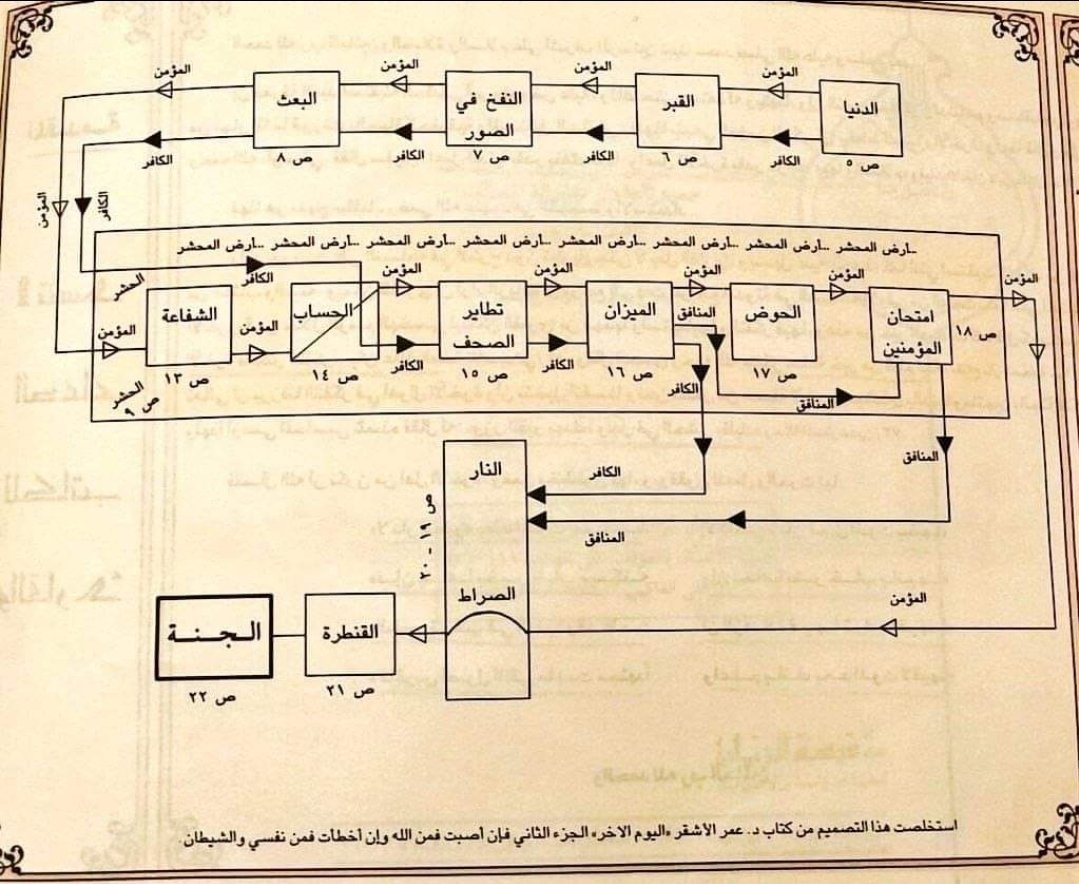 المؤمن
المؤمن
المؤمن
المؤمن
الدنيا
ص ٥
القبر
ص ٦
النفخ في
الصور
ص ٧
البعث
ص ٨
الكافر
الكافر
الكافر
الكافر
المؤمن
الكافر
..ارض المحشر ..ارض المحشر ..ارض المحشر ..ارض المحشر ..ارض المحشر ..ارض المحشر ..ارض المحشر ..ارض المحشر
الكافر
الحشر
المؤمن
الشفاعة
ص ١٣
المؤمن
الحساب
ص ١٤
المؤمن
الكافر
تطاير
الصحف
ص ١٥
المؤمن
الكافر
الميزان
ص ١٦
المؤمن
المنافق
الكافر
الحوض
ص ١٧
المؤمن
المنافق
امتحان
المؤمنين
ص ١٨
المؤمن
الحشر
ص ٩
المنافق
النار
ص ١٩ - ٢٠
الكافر
المنافق
الصراط
المؤمن
القنطرة
ص ٢١
الـجـنـــة
ص ٢٢
استخلصت هذا التصميم من كتاب د. عمر الأشقر «اليوم الاخر» الجزء الثاني فإن أصبت فمن الله وإن أخطأت فمن نفسي والشيطان.